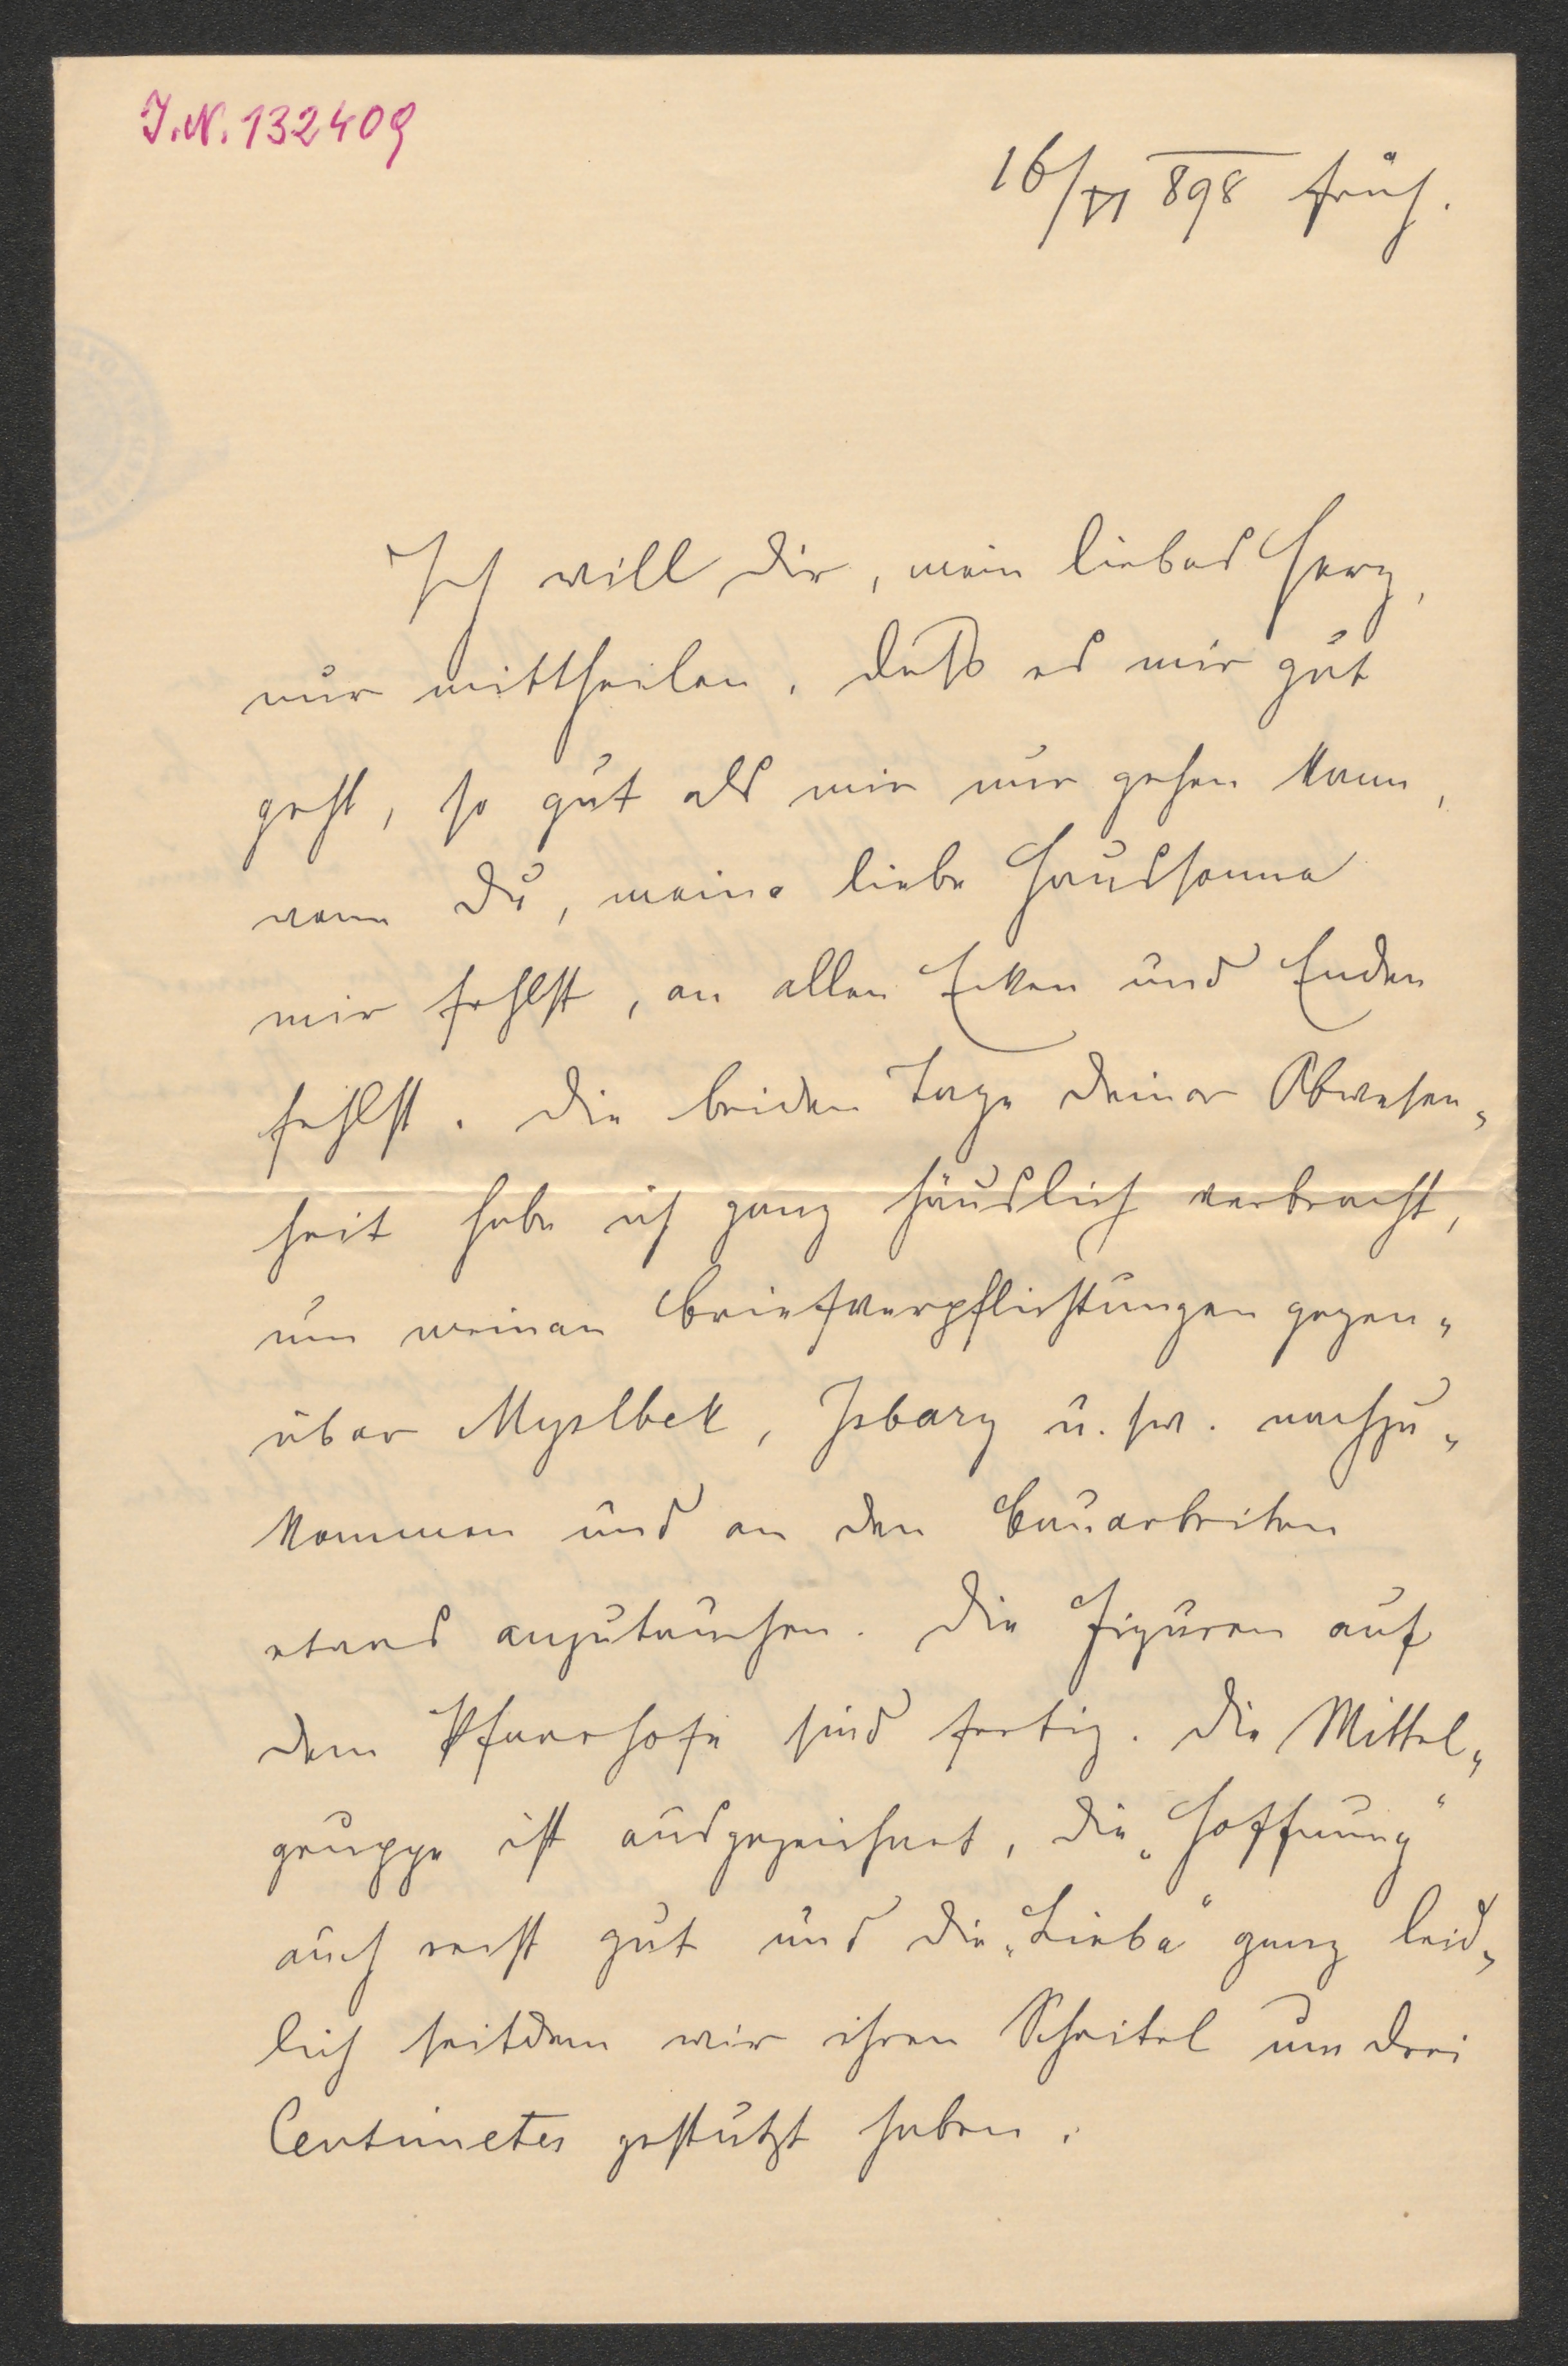 I.N. 132409
16/VI 898 früh.
Ich will dir, mein liebes Herz,
nur mittheilen, daß es mir gut
geht, so gut als mir nur gehen kann,
wenn Du, meine liebe Haussonne
mir fehlst, an allen Ecken und Enden
fehlst. Die beiden Tage deiner Abwesen„
heit habe ich ganz häuslich verbracht,
um meinen Briefverpflichtungen gegen„
über Myslbek, Isbary u. sw. nachzu„
kommen und an den Bauarbeiten
etwas anzutauchen. Die Figuren auf
dem Pfarrhofe sind fertig. Die Mittel„
gruppe ist ausgezeichnet, die „Hoffnung“
auch recht gut und die „Liebe“ ganz leid„
lich seitdem wir ihren Scheitel um drei
Centimeter gestutzt haben.